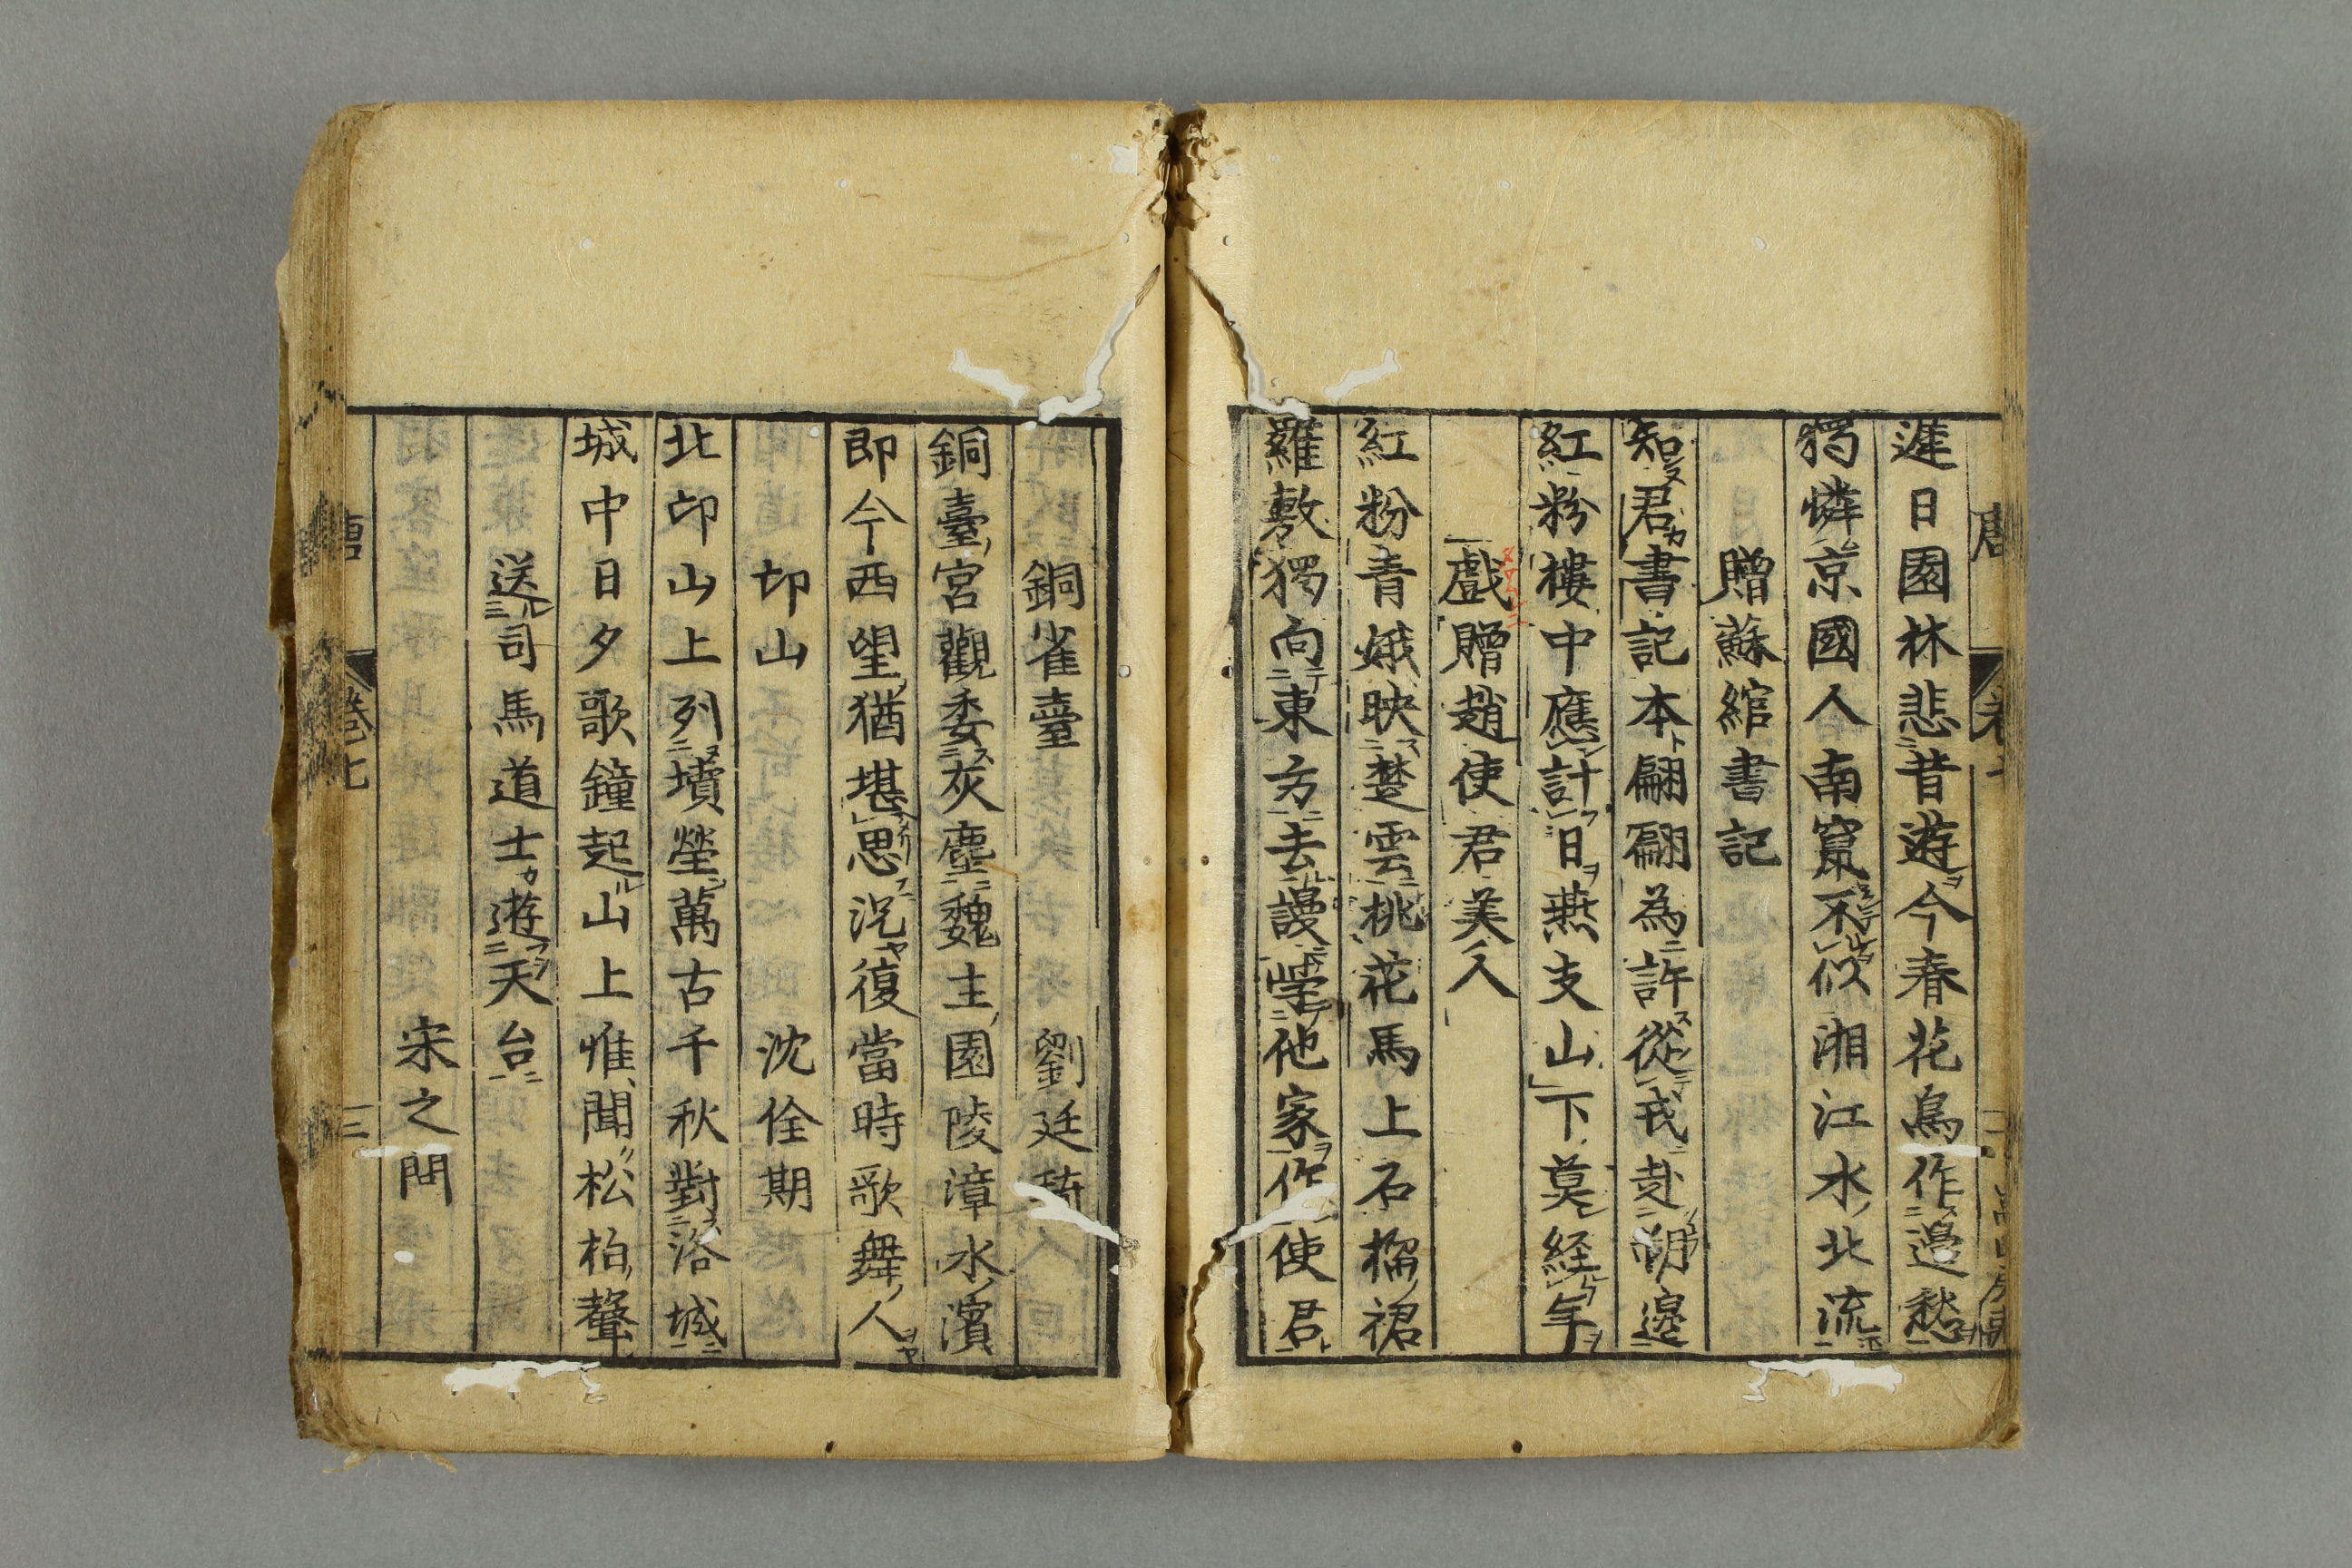 遲日園林悲昔遊今春花鳥作邉愁
獨憐京國人南竄不似湘江水北流
贈蘇綰書記
知君書記本翩翩為許從戎赴朔邊
紅粉樓中應計日燕支山下莫経年
戲贈趙使君美人
紅粉青娥映楚雲桃花馬上石榴裙
羅敷獨向東方去謾學他家作使君
銅雀臺 劉廷琦
銅臺宮觀委灰塵魏主園陵漳水濱
即今西望猶堪思況復當時歌舞人
邙山 沈佺期
北邙山上列墳塋萬古千秋對洛城
城中日夕歌鐘起山上惟聞松柏聲
送司馬道士遊天台
宋之問
唐 卷七 三